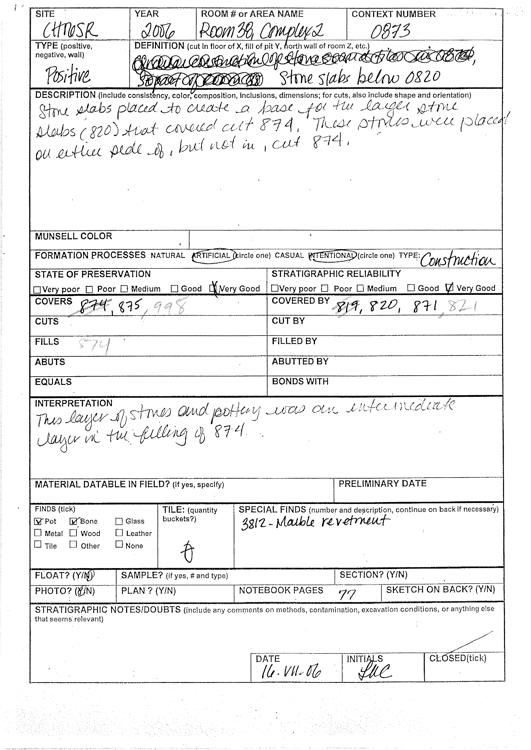 SITE YEAR ROOM # or AREA NAME CONTEXT NUMBER
CHTNSR 2006 Room 38, Complex 2 0873
TYPE (positive, negative, wall) DEFINITION (cut in floor of X, fill of pit Y, north wall of room Z, etc.)
Positive Stone slabs below 0820
DESCRIPTION (include consistency, color, composition, inclusions, dimensions; for cuts, also include shape and orientation)
Stone slabs placed to create a base for the larger stone
slabs (820) that covered cut 874. These stones were placed
on either side of, but not in, cut 874.
MUNSELL COLOR
FORMATION PROCESSES NATURAL ARTIFICIAL (circle one) CASUAL INTENTIONAL (circle one) TYPE: Construction
STATE OF PRESERVATION STRATIGRAPHIC RELIABILITY
Very poor Poor Medium Good Very Good Very Poor Poor Medium Good Very Good
COVERS 874, 875, 998 COVERED BY 819, 820, 871, 821
CUTS CUT BY
FILLS 874 FILLED BY
ABUTS ABUTTED BY
EQUALS BONDS WITH
INTERPRETATION
This layer of stones and pottery was an intermediate
layer in the filling of 874.
MATERIAL DATABLE IN FIELD? (if yes, specify) PRELIMINARY DATE
FINDS (tick) TILE: (quantity buckets?) SPECIAL FINDS (number and description, continue on back if necessary)
Pot Bone Glass 3812 - Marble revetment
Metal Wood Leather
Tile Other None
FLOAT? (Y/N) SAMPLE? (if yes, # and type) SECTION? (Y/N)
PHOTO? (Y/N) PLAN? (Y/N) NOTEBOOK PAGES 77 SKETCH ON BACK? (Y/N)
STRATIGRAPHIC NOTES/DOUBTS (include any comments on methods, contamination, excavation conditions, or anything else
that seems relevant)
DATE INITIALS CLOSED(tick)
16-VII-06